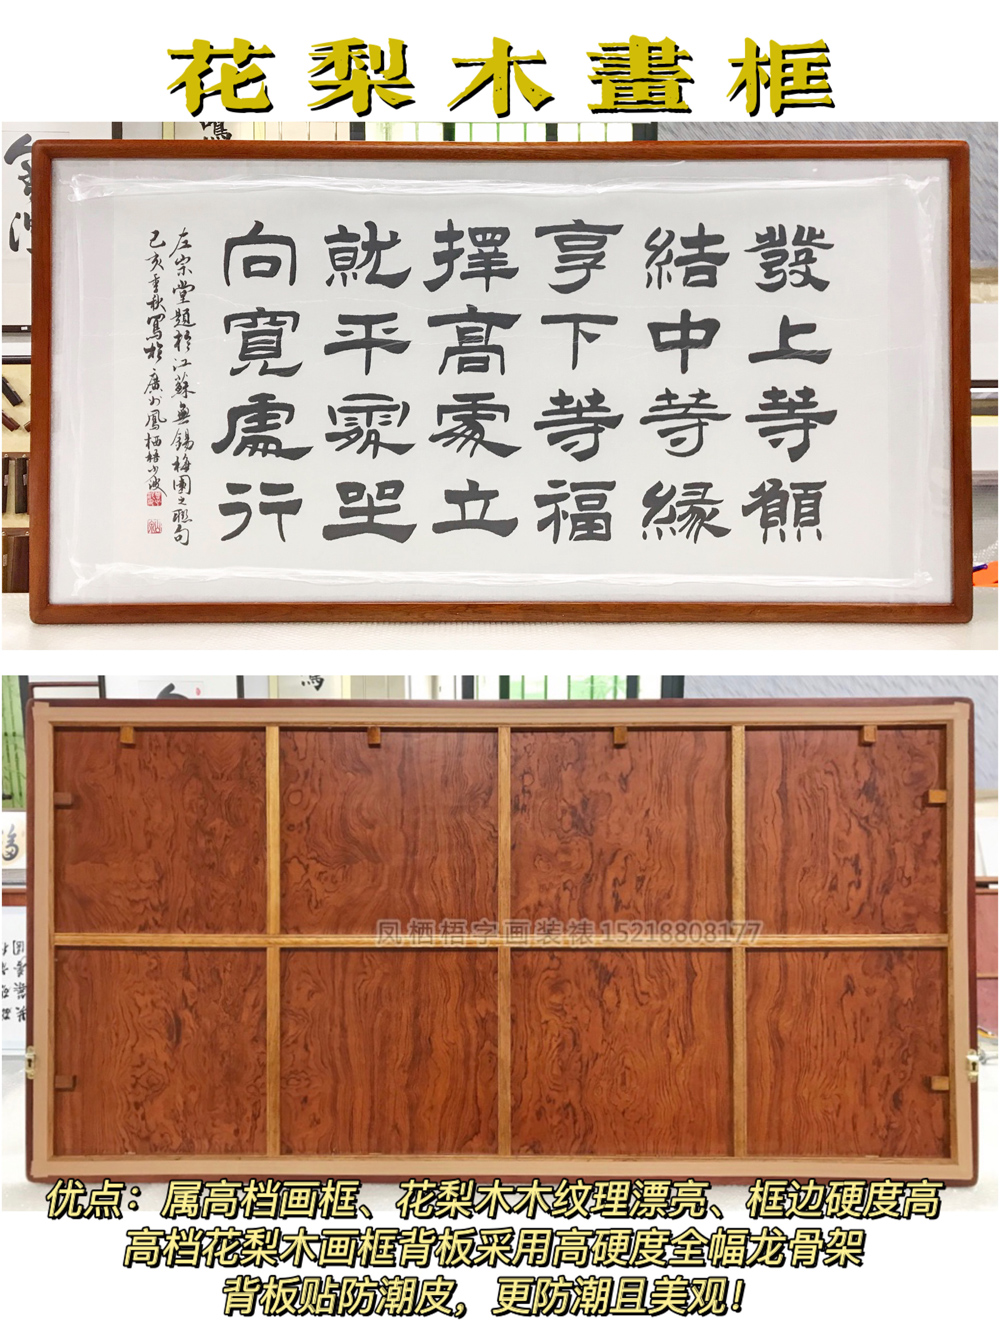 花梨木畫框
發上等願
結中等緣
享下等福
擇高處立
就平處坐
向寬處行
左宗堂題於江蘇無錫梅園之聯句
己亥季秋寫於廣州鳳栖梧小波
凤栖梧字画装裱15218808177
优点：属高档画框、花梨木木纹理漂亮、框边硬度高
高档花梨木画框背板采用高硬度全幅龙骨架
背板贴防潮皮，更防潮且美观！